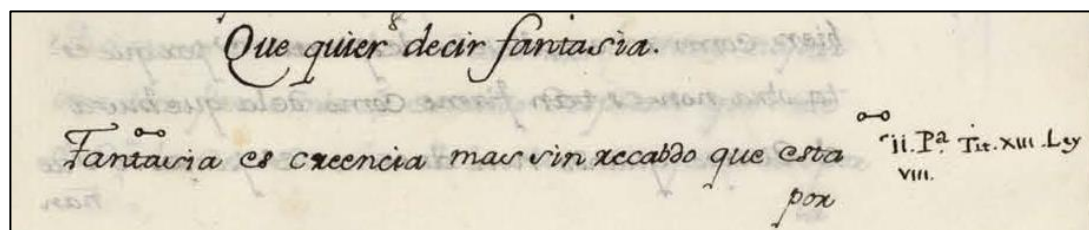 Que quier⁸ decir fantasia.
Fantasia es creencia mas sin recabdo que esta
por
ii. Pª. Tit. XIII. Ley
VIII.